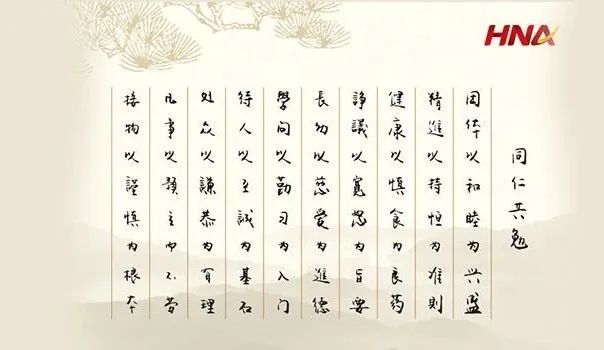 HNA
同仁共勉
团体以和睦为兴盛
精進以持恒为准则
健康以慎食为良药
諍議以寬恕为旨要
長幼以慈爱为進德
學问以勤习为入门
待人以至誠为基石
处众以謙恭为有理
凡事以預立而不劳
接物以謹慎为根本